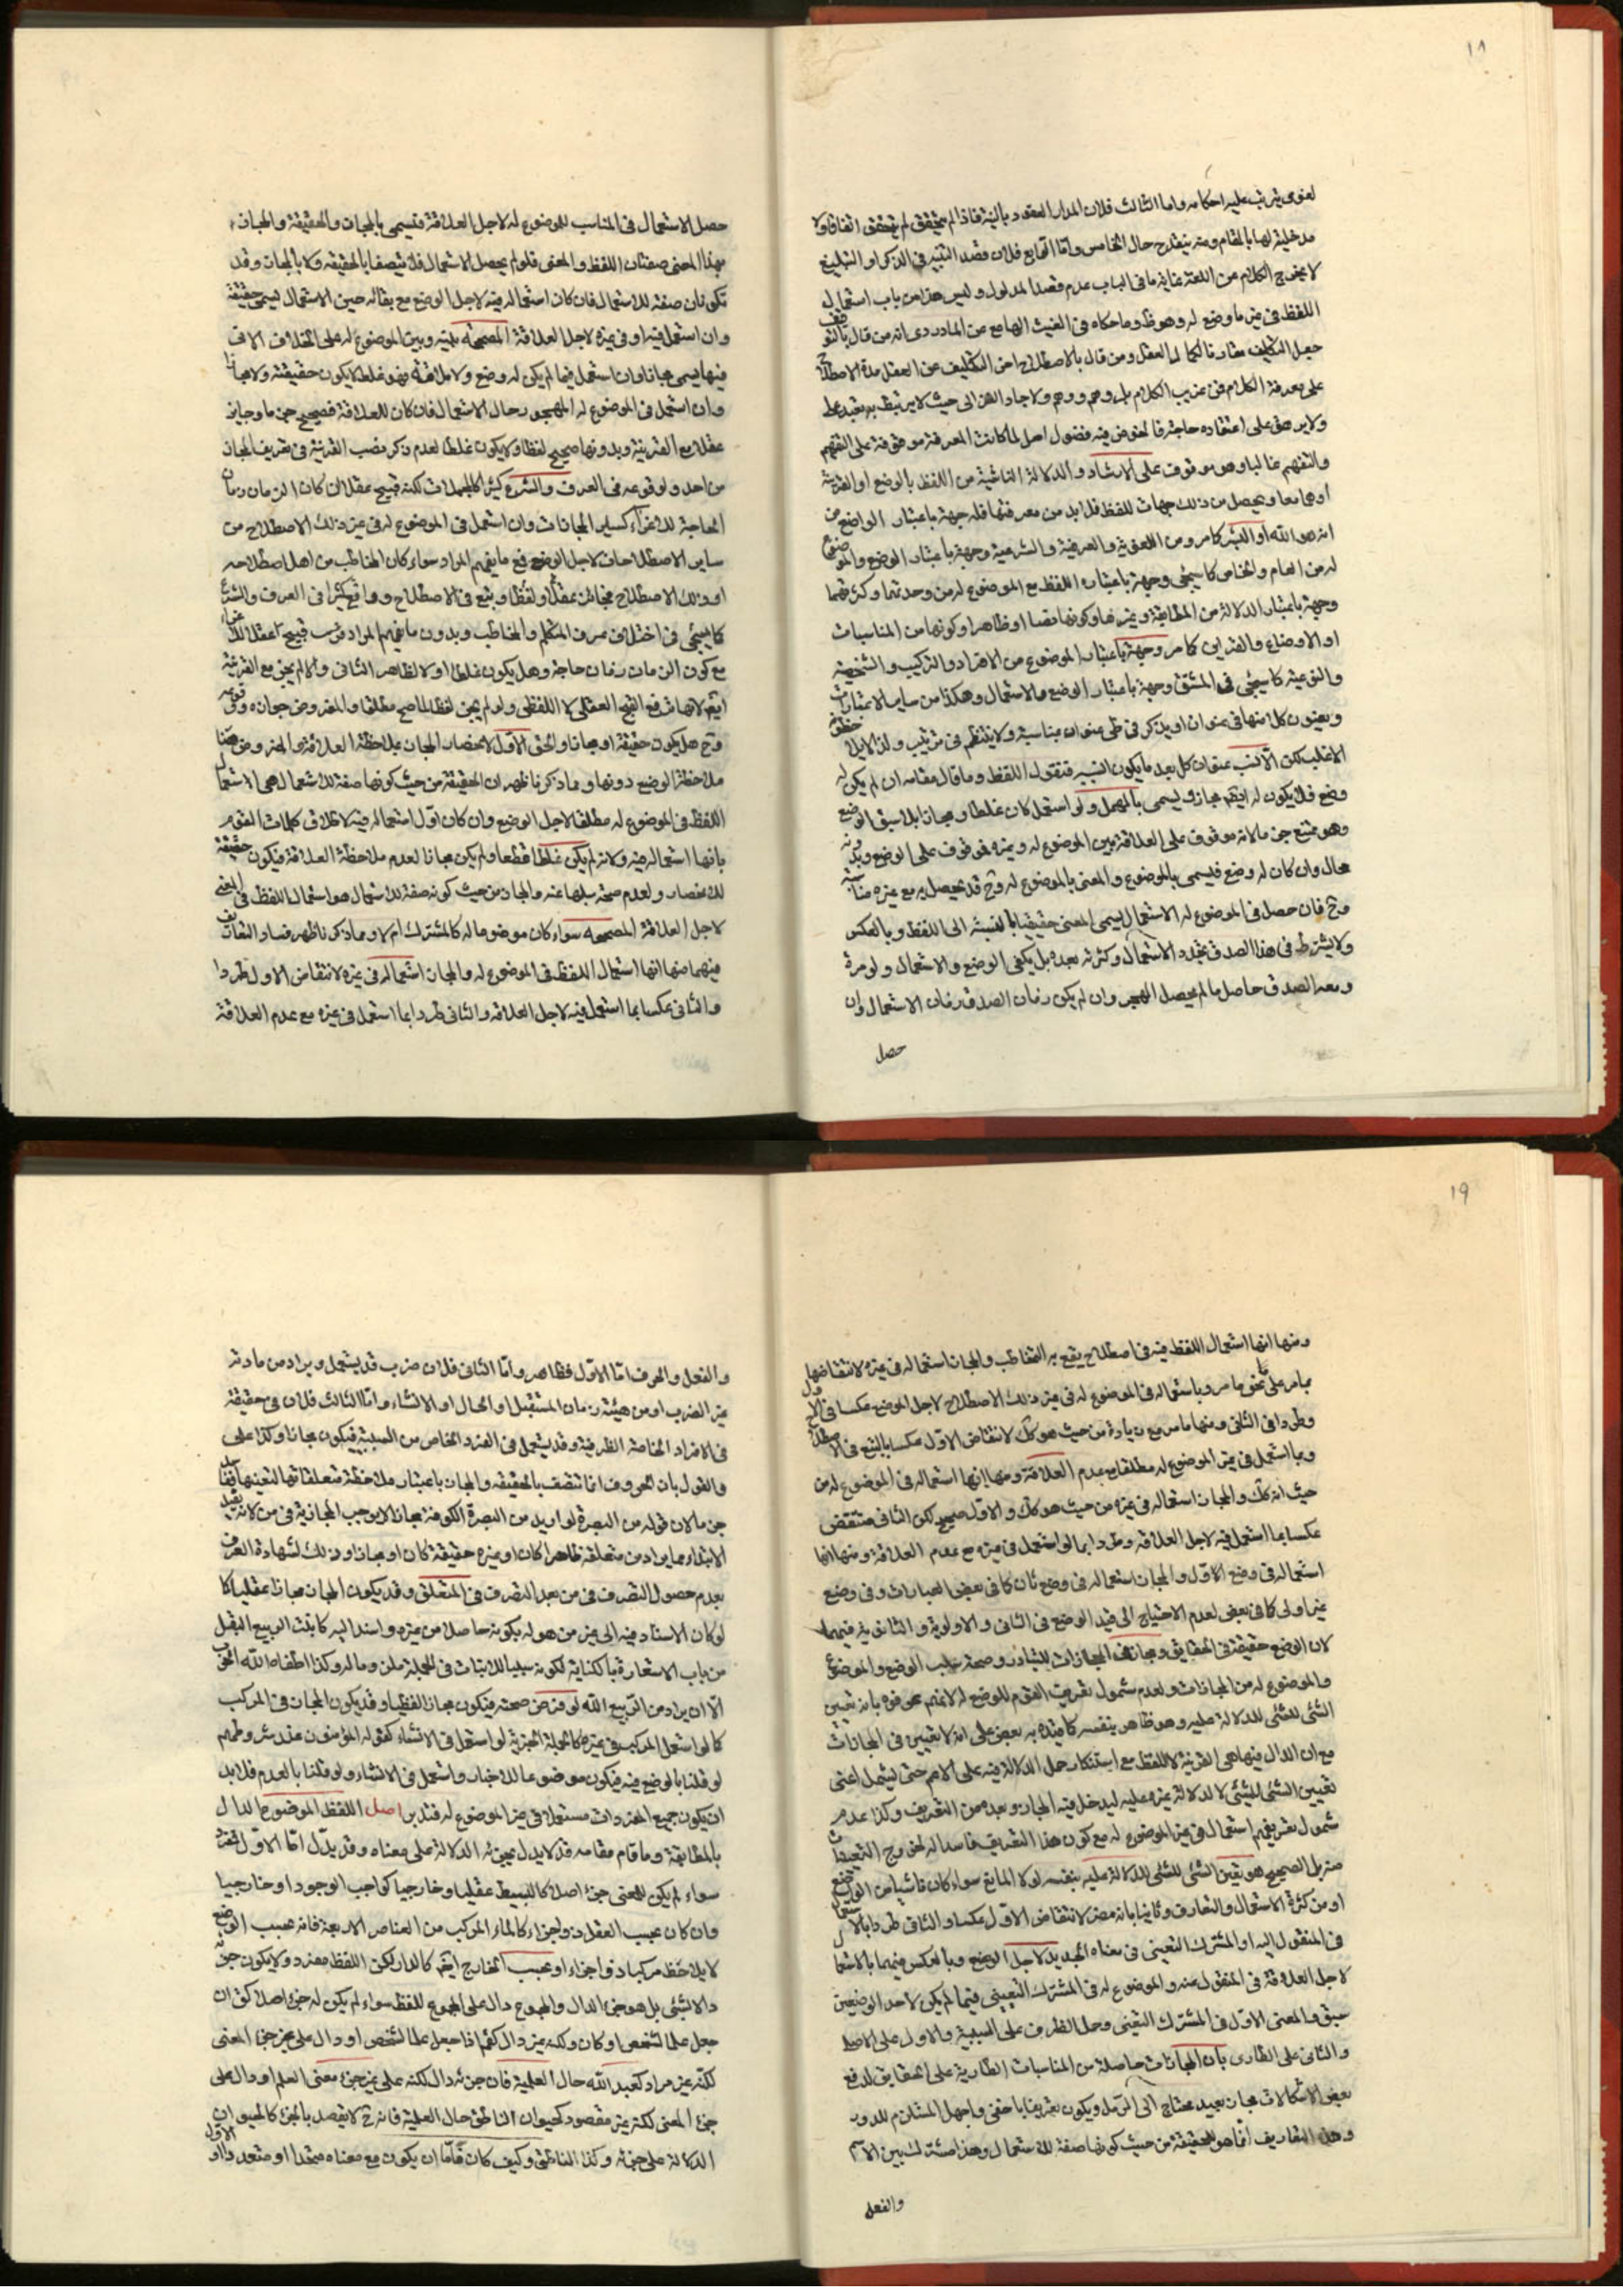 ١٨
لغوى يترتب عليه احكامه واما الثالث فلان المدار العقود بالنية فاذا لم يتحقق لم يتحقق اتفاقا ولا
مدخلية لها بالمقام ومنه ينقدح حال الخامس واما الرابع فلان قصد التنبيه في الذكر او التبليغ
لا يخرج الكلام عن اللغة غاية ما في الباب عدم قصد المدلول وليس هذا من باب استعمال
اللفظ في غير ما وضع له وهو ظ وما حكاه في الغيث الهامع عن الماوردى انه من قال بالتوقيف
جعل التكليف مقارنا لكمال العقل ومن قال بالاصطلاح اخر التكليف عن العقل مدة الاصطلاح
على معرفة الكلام فمن غريب الكلام بل وهم ووهم ولا جاد الفن الى حيث لا يرتبط به بعيد على
ولا يرهق على اعتقاده حاجة فالخوض فيه فضول اصل لما كانت المعرفة موقوفة على التفهم
والتفهم غالبا وهو موقوف على الارشاد والدلالة الناشئة من اللفظ بالوضع او القرينة
او هما معا ويحصل من ذلك جهات للفظ فلابد من معرفتها فله جهة باعتبار الواضع من
انه هو الله او البشر كما مر ومن اللغوية والعرفية والشرعية وجهة باعتبار الوضع والموضوع
له من العام والخاص كما سيجئ وجهة باعتبار اللفظ مع الموضوع له من وحدتهما وكثرتهما
وجهة باعتبار الدلالة من المطابقة وغيرها وكونها نصا او ظاهرا وكونها من المناسبات
او الاوضاع والقراين كما مر وجهة باعتبار الموضوع من الافراد والتركيب والشخصية
والنوعية كما سيجئ في المشتق وجهة باعتبار الوضع والاستعمال وهكذا من ساير الاعتبارات
ويعنون كل منها في عنوان او يذكر في طى عنوان بمناسبة ولا ينتظم في ترتيب ولذا لا يلاحظونه
الاغلب لكن الانسب عنوان كل بعد ما يكون انسب فنقول اللفظ وما قال مقامه ان لم يكن له
وضع فلا يكون له ايضا مجاز ويسمى بالمهمل ولو استعمل كان غلطا ومجازا بلا سبق الوضع
وهو ممتنع جزما لانه موقوف على العلاقة بين الموضوع له وغيره فموقوف على الوضع وبدونه
محال وان كان له وضع فيسمى بالموضوع والمعنى بالموضوع له وح قد يحصل به مع غيره مناسبة
وح فان حصل في الموضوع له الاستعمال يسمى المعنى حقيقيا بالنسبة الى اللفظ وبالعكس
ولا يشترط في هذا الصدق تجدد الاستعمال وكثرته بعده بل يكفى الوضع والاستعمال ولو مرة
ومعه الصدق حاصل ما لم يحصل الهجر وان لم يكن زمان الصدق زمان الاستعمال وان
حصل
حصل الاستعمال في المناسب للموضوع له لاجل العلاقة فتسمى بالمجازات والحقيقة والمجاز
بهذا المعنى صفتان اللفظ والمعنى فلو لم يحصل الاستعمال فلا يتصفا بالحقيقة ولا بالمجازات وقد
تكونان صفة للاستعمال فان كان استعماله فيه لاجل الوضع مع بقائه حين الاستعمال يسمى حقيقة
وان استعمل فيه او في غيره لاجل العلاقة المصححة بينه وبين الموضوع له على اختلاف الاف
فيها يسمى مجازا وان استعمل فيما لم يكن له وضع ولا علاقة فهو غلط لا يكون حقيقة ولا مجازا
وان استعمل في الموضوع له المهجور حال الاستعمال فان كان للعلاقة فصحيح جزما وجايز
عقلا مع القرينة وبدونها صحيح لفظا ولا يكون غلطا لعدم ذكر نصب القرينة في تعريف المجاز
من احد ولوقوعه في العرف والشرع كثيرا كالمجملات لكنه قبيح عقلا ان كان الزمان زمان
الحاجة للاغراء كساير المجازات وان استعمل في الموضوع له في غير ذلك الاصطلاح من
ساير الاصطلاحات لاجل الوضع فمع ما يفهم المراد سواء كان المخاطب من اهل اصطلاحه
او ذلك الاصطلاح فجائز عقلا ولفظا ويتبع في الاصطلاح وواقع كثيرا في العرف والشرع
كما سيجئ في اختلاف عرف المتكلم والمخاطب وبدون ما يفهم المراد منه قبيح عقلا للاغراء
مع كون الزمان زمان حاجة وهل يكون غلطا او لا الظاهر الثاني والا لم يجز مع القرينة
ايضا لانها ترفع القبح العقلى لا اللفظى ولو لم يجز لفظا لما صح مطلقا والمفروض جوازه وقوعه
وح هل يكون حقيقة او مجازا والحق الاول لانحصار المجاز بملاحظة العلاقة والمفروض هنا
ملاحظة الوضع دونها ومما ذكرنا ظهر ان الحقيقة من حيث كونها صفة للاستعمال هي استعمال
اللفظ في الموضوع له مطلقا لاجل الوضع وان كان اول استعماله فيه لاطلاق كلمات القوم
بانها استعماله فيه ولانه لم يكن غلطا قطعا ولم يكن مجازا لعدم ملاحظة العلاقة فيكون حقيقة
للانحصار ولعدم صحة سلبها عنه والمجاز من حيث كونه صفة للاستعمال هو استعمال اللفظ في المعنى
لاجل العلاقة المصححة سواء كان موضوعا له كالمشترك ام لا ومما ذكرنا ظهر فساد التعاريف
فيهما منها انها استعمال اللفظ في الموضوع له والمجاز استعماله في غيره لانتقاض الاول طردا
والثاني عكسا بما استعمل فيه لاجل العلاقة والثاني طردا بما استعمل في غيره مع عدم العلاقة
١٩
ومنها انها استعمال اللفظ فيه في اصطلاح يقع به التخاطب والمجاز استعماله في غيره لانتقاضها
بما مر على نحو ما مر وباستعماله في الموضوع له في غير ذلك الاصطلاح لاجل الوضع عكسا في الاول
وطردا في الثاني ومنها ما مر مع زيادة من حيث هو كك لانتقاض الاول عكسا بالتبع في الاصطلاح
وبما استعمل في غير الموضوع له مطلقا مع عدم العلاقة ومنها انها استعماله في الموضوع له من
حيث انه كك والمجاز استعماله في غيره من حيث هو كك والاول صحيح لكن الثاني منتقض
عكسا بما استعمل فيه لاجل العلاقة وطردا بما لو استعمل في غيره مع عدم العلاقة ومنها انها
استعماله في وضع الاول والمجاز استعماله في وضع ثان كما في بعض العبارات وفي وضع
غير اولى كما في بعض لعدم الاحتياج الى قيد الوضع في الثاني والاولوية والثانوية فيهما
لان الوضع حقيقة في الحقايق ومجاز في المجازات للتبادر وصحة سلب الوضع والموضوع
والموضوع له من المجازات ولعدم شمول تعريف القوم للوضع له لانهم عرفوه بانه تعيين
الشئ للشئ للدلالة عليه وهو ظاهر بنفسه كما قيده به بعض على انه لا تعيين في المجازات
مع ان الدال فيها هي القرينة لا اللفظ مع استنكار حمل الدلالة فيه على الاعم حتى يشمل اعنى
تعيين الشئ للشئ لا لدلالة غيره عليه ليدخل فيه المجاز وبعده من التعريف وكذا عدم
شمول تعريفهم استعمال في غير الموضوع له مع كون هذا التعريف فاسدا له لخروج التعينات
منه بل الصحيح هو تعين الشئ للشئ للدلالة عليه بنفسه لولا المانع سواء كان ناشيا من الوضع
او من كثرة الاستعمال والتعارف وثانيا بانه مضر لانتقاض الاول عكسا والثاني طردا بالاستعمال
في المنقول اليه او المشترك التعينى في معناه الجديد لاجل الوضع وبالعكس فيهما بالاستعمال
لاجل العلاقة في المنقول عنه والموضوع له في المشترك التعيينى فيما لم يكن لاحد الوضعين
سبق والمعنى الاول في المشترك التعينى وحمل الظرف على السببية والاول على الاصل
والثاني على الطارى بان المجازات حاصلة من المناسبات الطارية على الحقايق لدفع
بعض الاشكالات مجاز بعيد محتاج الى التامل ويكون تعريفا باخفى واجهل المستلزم للدور
وهذه التعاريف انما هو للحقيقة من حيث كونها صفة للاستعمال وهذا صفة لك بين الاسم
والفعل
والفعل والحرف اما الاول فظاهر واما الثاني فلان ضرب قد يستعمل ويراد من مادته
غير الضرب او من هيئته زمان المستقبل او الحال او الانشاء واما الثالث فلان في حقيقة
في الافراد الخاصة الظرفية وقد يستعمل في الفرد الخاص من السببية فيكون مجازا وكذا على
والقول بان الحروف انما تتصف بالحقيقة والمجاز باعتبار ملاحظة متعلقاتها لتعينها
جزما لان قوله من البصرة لو اريد من البصرة الكوفة مجازا لا يوجب المجازية في من لانه يفيد
الابتداء مما يراد من متعلقه ظاهرا كان او غيره حقيقة كان او مجازا وذلك لشهادة العرف
بعدم حصول التصرف في من بعد التصرف في المتعلق وقد يكون المجاز مجازا عقليا كما
لو كان الاسناد فيه الى غير من هو له بكونه حاصلا من غيره واسند اليه كانبت الربيع البقل
من باب الاستعارة بالكناية لكونه سببا للانبات في الجملة ملزوما له وكذا اطفاه الله الحق
الا ان يراد من الربيع الله لو فرض صحته فيكون مجازا لفظيا وقد يكون المجاز في المركب
كما لو استعمل المركب في غيره كالجملة الخبرية لو استعمل في الانشاء كقوله المؤمنون عند شروطهم
لو قلنا بالوضع فيه فيكون موضوعا للاخبار واستعمل في الانشاء ولو قلنا بالعدم فلابد
ان يكون جميع المفردات مستعملا في غير الموضوع له فتدبر اصل اللفظ الموضوع الدال
بالمطابقة وما قام مقامه قد لا يدل بجزئه الدلالة على معناه وقد يدل اما الاول فمفرد
سواء لم يكن للمعنى جزء اصلا كالبسيط عقليا وخارجيا كواجب الوجود او خارجيا
وان كان بحسب العقل ذو اجزاء كالماء المركب من العناصر الاربعة فانه بحسب الوضع
لا يلاحظ مركبا ذو اجزاء او بحسب الخارج ايضا كالدار لكن اللفظ مفرد ولا يكون جزئه
دالا لشئ بل هو جزء الدال والمجموع دال على المجموع للفظ سواء لم يكن له جزء اصلا كق ان
جعل علما لشخص او كان ولكنه غير دال كقم اذا جعل علما لشخص او دال على غير جزء المعنى
لكنه غير مراد كعبد الله حال العلمية فان جزئه دال لكنه على غير جزء معنى العلم او دال على
جزء المعنى لكنه غير مقصود كحيوان الناطق حال العلمية فانه ح لا يقصد بالجزء كالحيوان
الدلالة على جزئه وكذا الناطق وكيف كان فاما ان يكون مع معناه متحدا او متعددا الاول